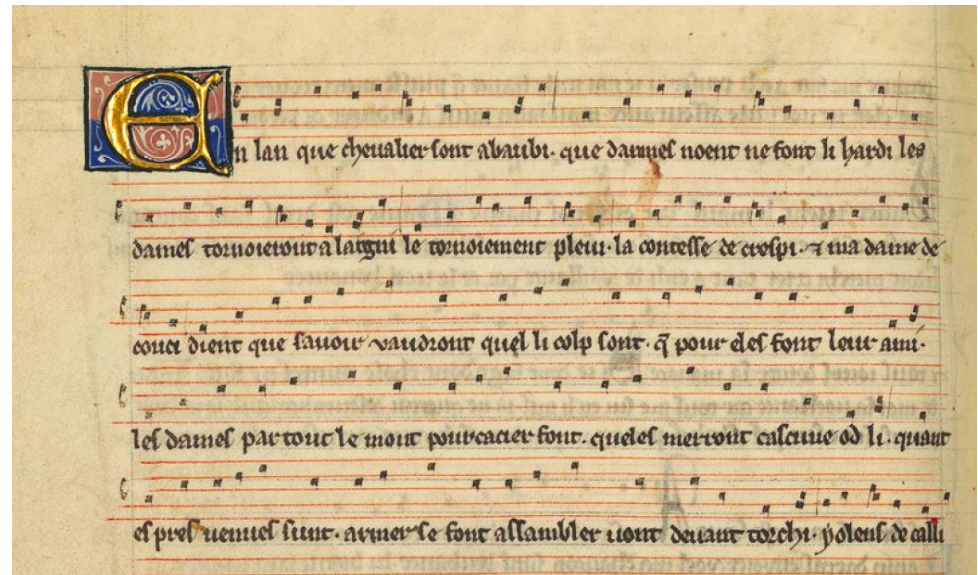 En lan que cheualier sont abaubi. que darmes noent ne font li hardi les
dames tornoier uont a laigni le tornoiement pleui. la contesse de crespi. ⁊ ma dame de
couci dient que sauoir uaudront quel li colp sont. q̃ pour eles font leur ami.
les dames par tout le mont pourcacier font. queles merront cascune od li. quant
es pres uenues sunt. armer se font assambler uont deuant torchi. yolens de calli